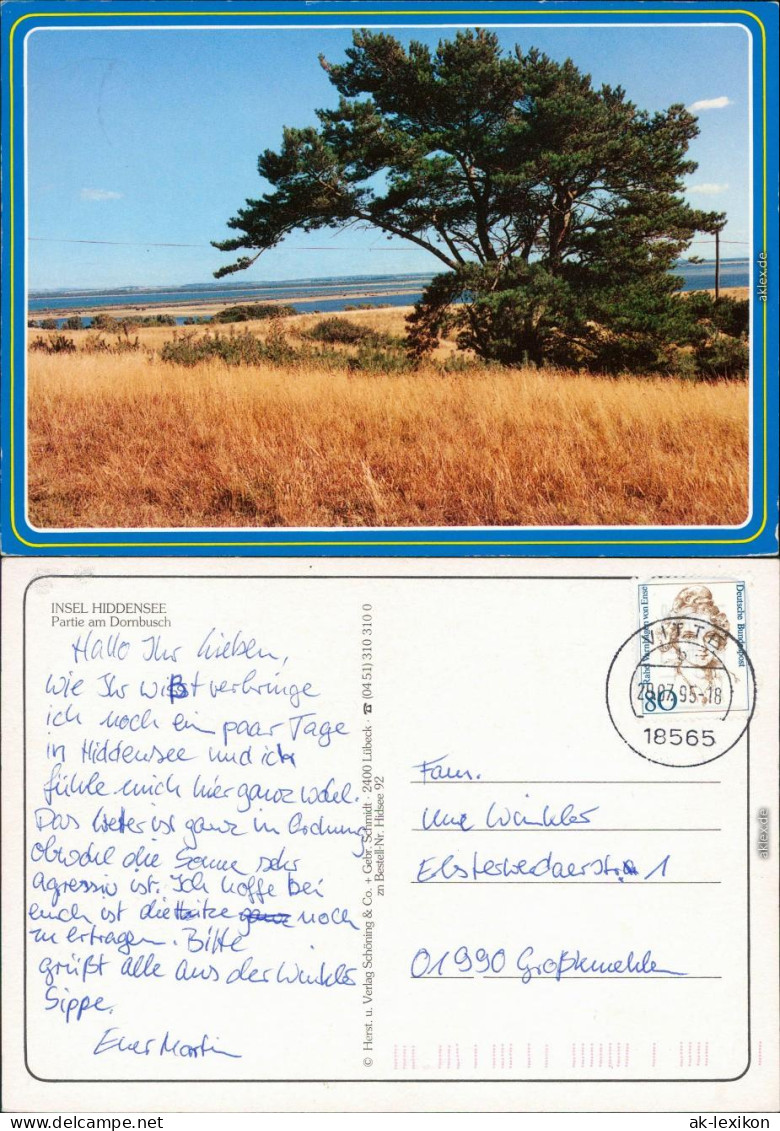 aklex.de
INSEL HIDDENSEE
Partie am Dornbusch
Hallo Ihr Lieben,
wie Ihr wißt verbringe
ich noch ein paar Tage
in Hiddensee und ich
fühle mich hier ganz wohl.
Das Wetter ist ganz in Ordnung
obwohl die Sonne sehr
agressiv ist. Ich hoffe bei
euch ist die Hitze ganz noch
zu ertragen. Bitte
grüßt alle aus der Winkler
Sippe.
Euer Martin
© Herst. u. Verlag Schöning & Co. + Gebr. Schmidt · 2400 Lübeck · ☎ (04 51) 310 310 0
zn Bestell-Nr. Hidsee 92
Deutsche Bundespost
Rahel Varnhagen von Ense
80
VITTE
b
95-18
18565
Fam.
Uwe Winkler
Elsterwerdaerstr. 1
01990 Großkmehlen
aklex.de
ak-lexikon